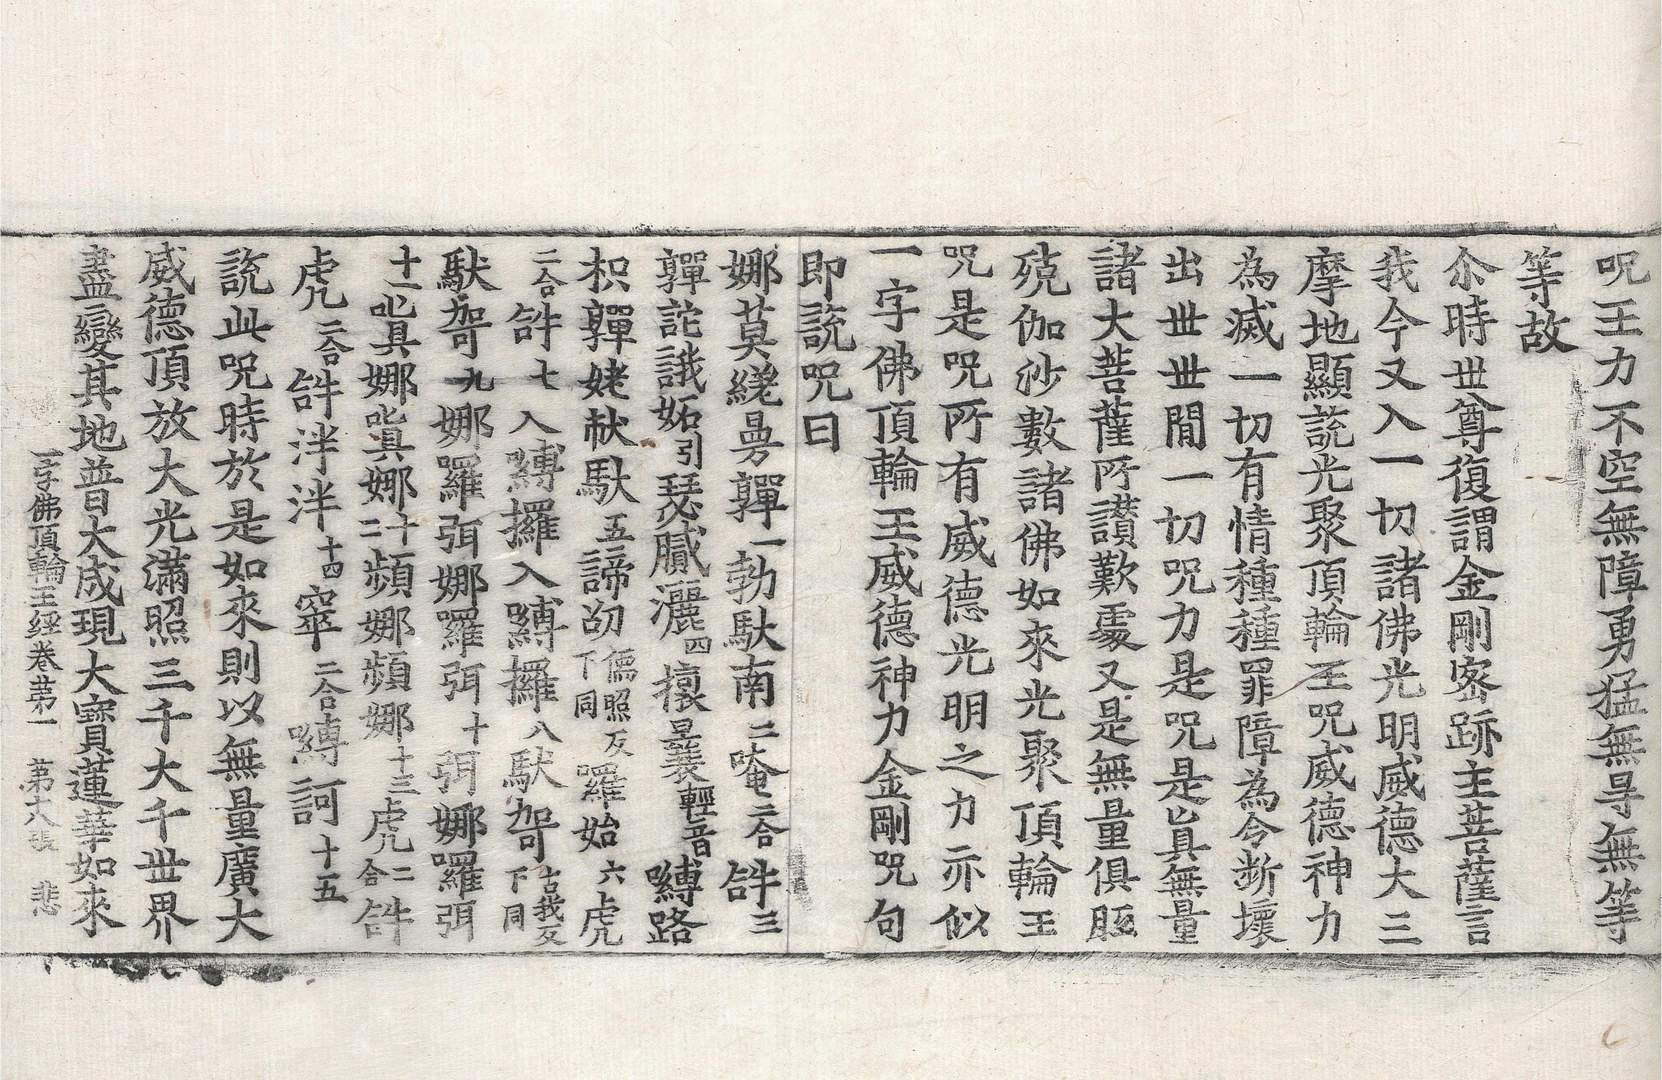 呪王力不空無障勇猛無㝵無等
等故
尒時世尊復謂金剛宻跡主菩薩言
我今又入一切諸佛光明威德大三
摩地顯說光聚頂輪王呪威德神力
為滅一切有情種種罪障為令断壞
出世世間一切呪力是呪是具無量
諸大菩薩所讃歎處又是無量俱胝
殑伽沙數諸佛如來光聚頂輪王
呪是呪所有威德光明之力亦似
一字佛頂輪王威德神力金剛呪句
即說呪曰
娜莫縒曼䩭一勃馱南二唵二合𤙖三
䩭詑誐妬引瑟膩灑四攘曩䉵輕音嚩路
枳䩭姥㕹馱五諦䂐儒照反下同羅始六虎
二合𤙖七入嚩攞入嚩攞八馱嚩古我反下同
馱哿九娜囉弭娜囉弭十弭娜囉弭
十一叱具娜叱具娜十二頻娜頻娜十三虎二合𤙖
虎二合𤙖泮泮十四窣二合嚩訶十五
說此呪時於是如來則以無量廣大
威德頂放大光滿照三千大千世界
盡變其地普大成現大寶蓮華如來
一字佛頂輪王經卷苐一 第十八張 悲